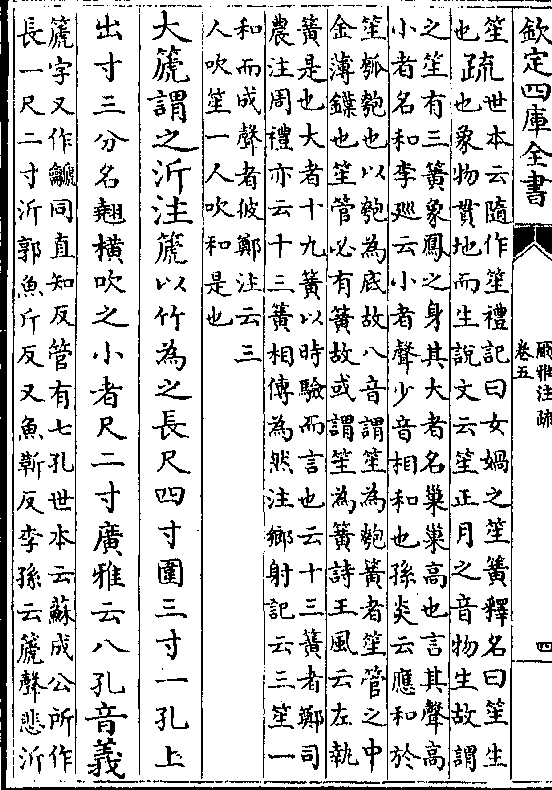 欽定四庫全書
爾雅注疏
卷五
四
笙
也
疏
世本云隨作笙禮記曰女媧之笙簧釋名曰笙生
也象物貫地而生說文云笙正月之音物生故謂
之笙有三簧象鳳之身其大者名巢巢高也言其聲高
小者名和李廵云小者聲少音相和也孫炎云應和於
笙瓠匏也以匏為底故八音謂笙為匏簧者笙管之中
金薄鐷也笙管必有簧故或謂笙為簧詩王風云左執
簧是也大者十九簧以時驗而言也云十三簧者鄭司
農注周禮亦云十三簧相傳為然注鄉射記云三笙一
和而成聲者彼鄭注云三
人吹笙一人吹和是也
大箎謂之沂注箎以竹為之長尺四寸圍三寸一孔上
出寸三分名翹橫吹之小者尺二寸廣雅云八孔音義
箎字又作𪛈同直知反管有七孔世本云蘇成公所作
長一尺二寸沂郭魚斤反又魚靳反李孫云箎聲悲沂